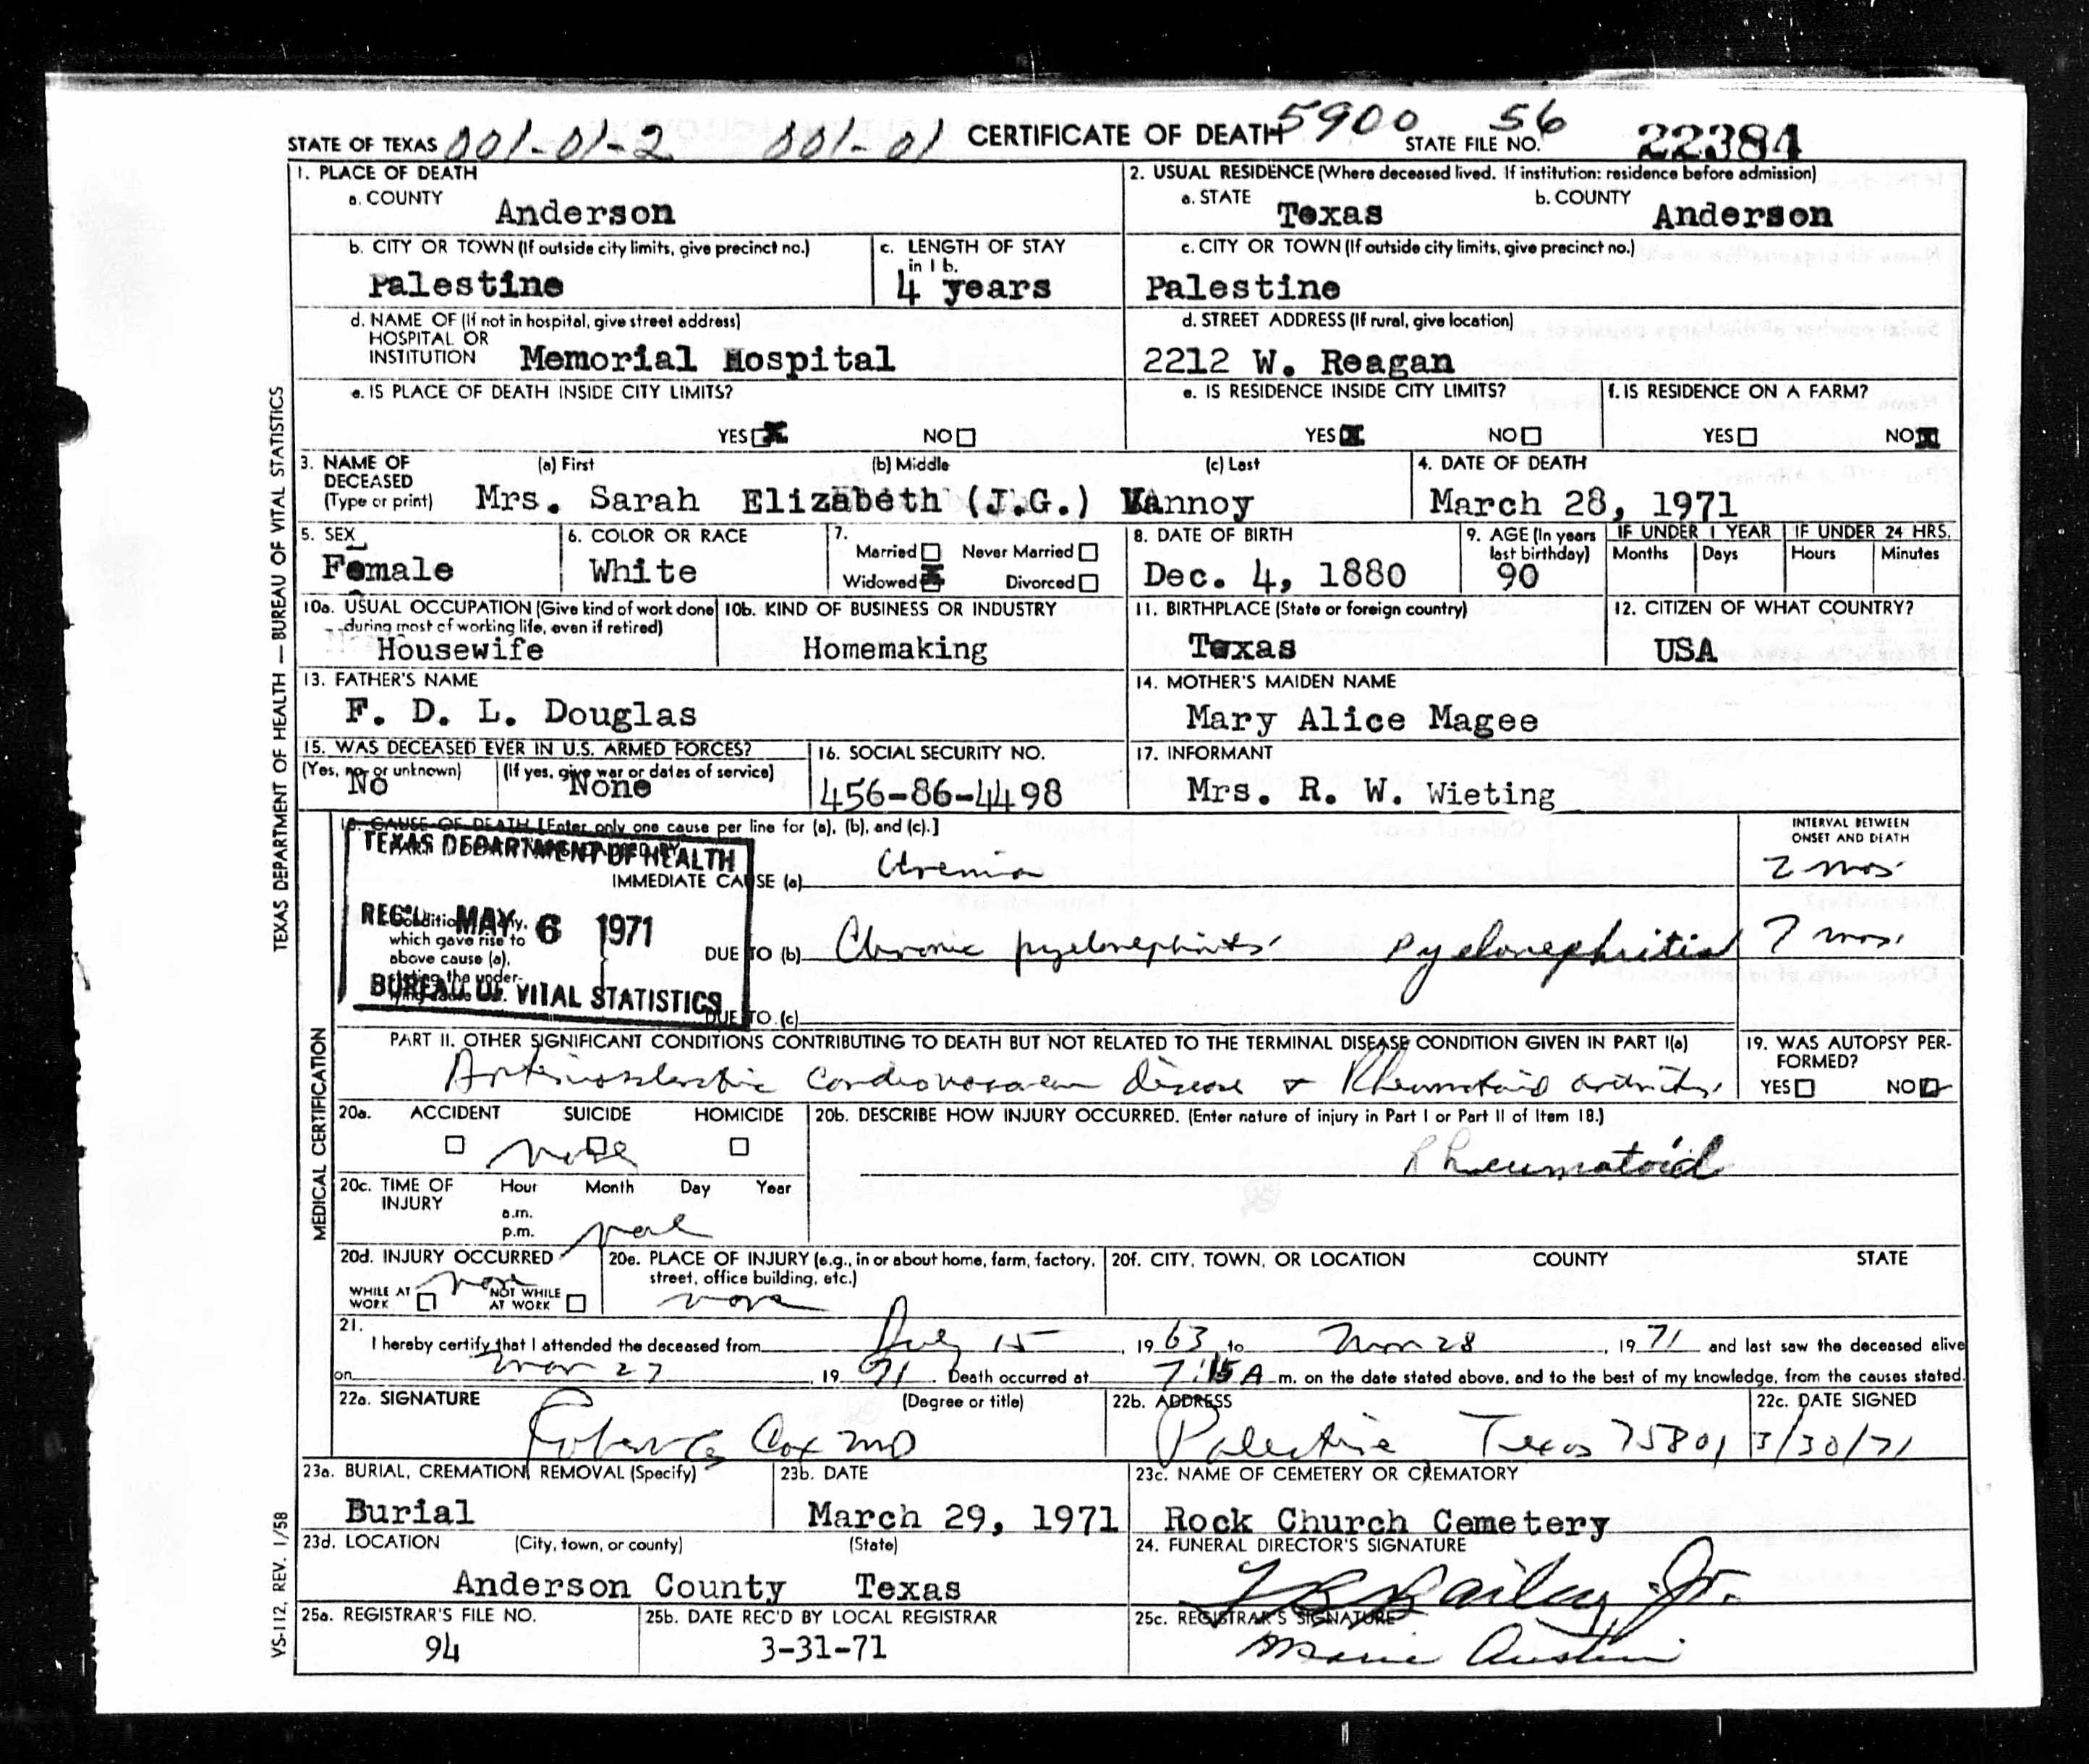 STATE OF TEXAS 001-01-2 001-01 CERTIFICATE OF DEATH 5900 56 STATE FILE NO. 22384
1. PLACE OF DEATH
a. COUNTY Anderson
2. USUAL RESIDENCE (Where deceased lived. If institution: residence before admission)
a. STATE Texas b. COUNTY Anderson
b. CITY OR TOWN (If outside city limits, give precinct no.) Palestine
c. LENGTH OF STAY in 1 b. 4 years
c. CITY OR TOWN (If outside city limits, give precinct no.) Palestine
d. NAME OF (If not in hospital, give street address)
HOSPITAL OR
INSTITUTION Memorial Hospital
d. STREET ADDRESS (If rural, give location)
2212 W. Reagan
e. IS PLACE OF DEATH INSIDE CITY LIMITS?
YES NO
e. IS RESIDENCE INSIDE CITY LIMITS?
YES NO
f. IS RESIDENCE ON A FARM?
YES NO
3. NAME OF DECEASED (Type or print) (a) First (b) Middle (c) Last
Mrs. Sarah Elizabeth (J.G.) Vannoy
4. DATE OF DEATH
March 28, 1971
5. SEX
Female
6. COLOR OR RACE
White
7.
Married Never Married
Widowed Divorced
8. DATE OF BIRTH
Dec. 4, 1880
9. AGE (In years last birthday)
90
IF UNDER 1 YEAR
Months Days
IF UNDER 24 HRS.
Hours Minutes
10a. USUAL OCCUPATION (Give kind of work done
during most of working life, even if retired)
Housewife
10b. KIND OF BUSINESS OR INDUSTRY
Homemaking
11. BIRTHPLACE (State or foreign country)
Texas
12. CITIZEN OF WHAT COUNTRY?
USA
13. FATHER'S NAME
F. D. L. Douglas
14. MOTHER'S MAIDEN NAME
Mary Alice Magee
15. WAS DECEASED EVER IN U.S. ARMED FORCES?
(Yes, no, or unknown) (If yes, give war or dates of service)
No None
16. SOCIAL SECURITY NO.
456-86-4498
17. INFORMANT
Mrs. R. W. Wieting
18. CAUSE OF DEATH [Enter only one cause per line for (a), (b), and (c).]
INTERVAL BETWEEN
ONSET AND DEATH
TEXAS DEPARTMENT OF HEALTH
IMMEDIATE CAUSE (a) Uremia 2 mos.
REC'D MAY 6 1971
which gave rise to
above cause (a),
stating the under-
DUE TO (b) Chronic pyelonephritis Pyelonephritis 7 mos.
BUREAU OF VITAL STATISTICS
DUE TO (c)
PART II. OTHER SIGNIFICANT CONDITIONS CONTRIBUTING TO DEATH BUT NOT RELATED TO THE TERMINAL DISEASE CONDITION GIVEN IN PART I(a)
Arteriosclerotic Cardiovascular disease + Rheumatoid arthritis
19. WAS AUTOPSY PERFORMED?
YES NO
20a. ACCIDENT SUICIDE HOMICIDE
none
20b. DESCRIBE HOW INJURY OCCURRED. (Enter nature of injury in Part I or Part II of Item 18.)
Rheumatoid
20c. TIME OF INJURY Hour Month Day Year
a.m.
p.m. none
20d. INJURY OCCURRED
none
WHILE AT WORK NOT WHILE AT WORK
20e. PLACE OF INJURY (e.g., in or about home, farm, factory,
street, office building, etc.)
none
20f. CITY, TOWN, OR LOCATION COUNTY STATE
21.
I hereby certify that I attended the deceased from 15, 1963, to Mar 28, 1971 and last saw the deceased alive
on Mar 27, 1971. Death occurred at 7:15 A m. on the date stated above, and to the best of my knowledge, from the causes stated.
22a. SIGNATURE (Degree or title)
Cox MD
22b. ADDRESS
Palestine Texas 75801
22c. DATE SIGNED
3/30/71
23a. BURIAL, CREMATION, REMOVAL (Specify)
Burial
23b. DATE
March 29, 1971
23c. NAME OF CEMETERY OR CREMATORY
Rock Church Cemetery
23d. LOCATION (City, town, or county) (State)
Anderson County Texas
24. FUNERAL DIRECTOR'S SIGNATURE
Bailey Jr.
25a. REGISTRAR'S FILE NO.
94
25b. DATE REC'D BY LOCAL REGISTRAR
3-31-71
25c. REGISTRAR'S SIGNATURE
Marie Austin
TEXAS DEPARTMENT OF HEALTH — BUREAU OF VITAL STATISTICS
MEDICAL CERTIFICATION
VS-112, REV. 1/58